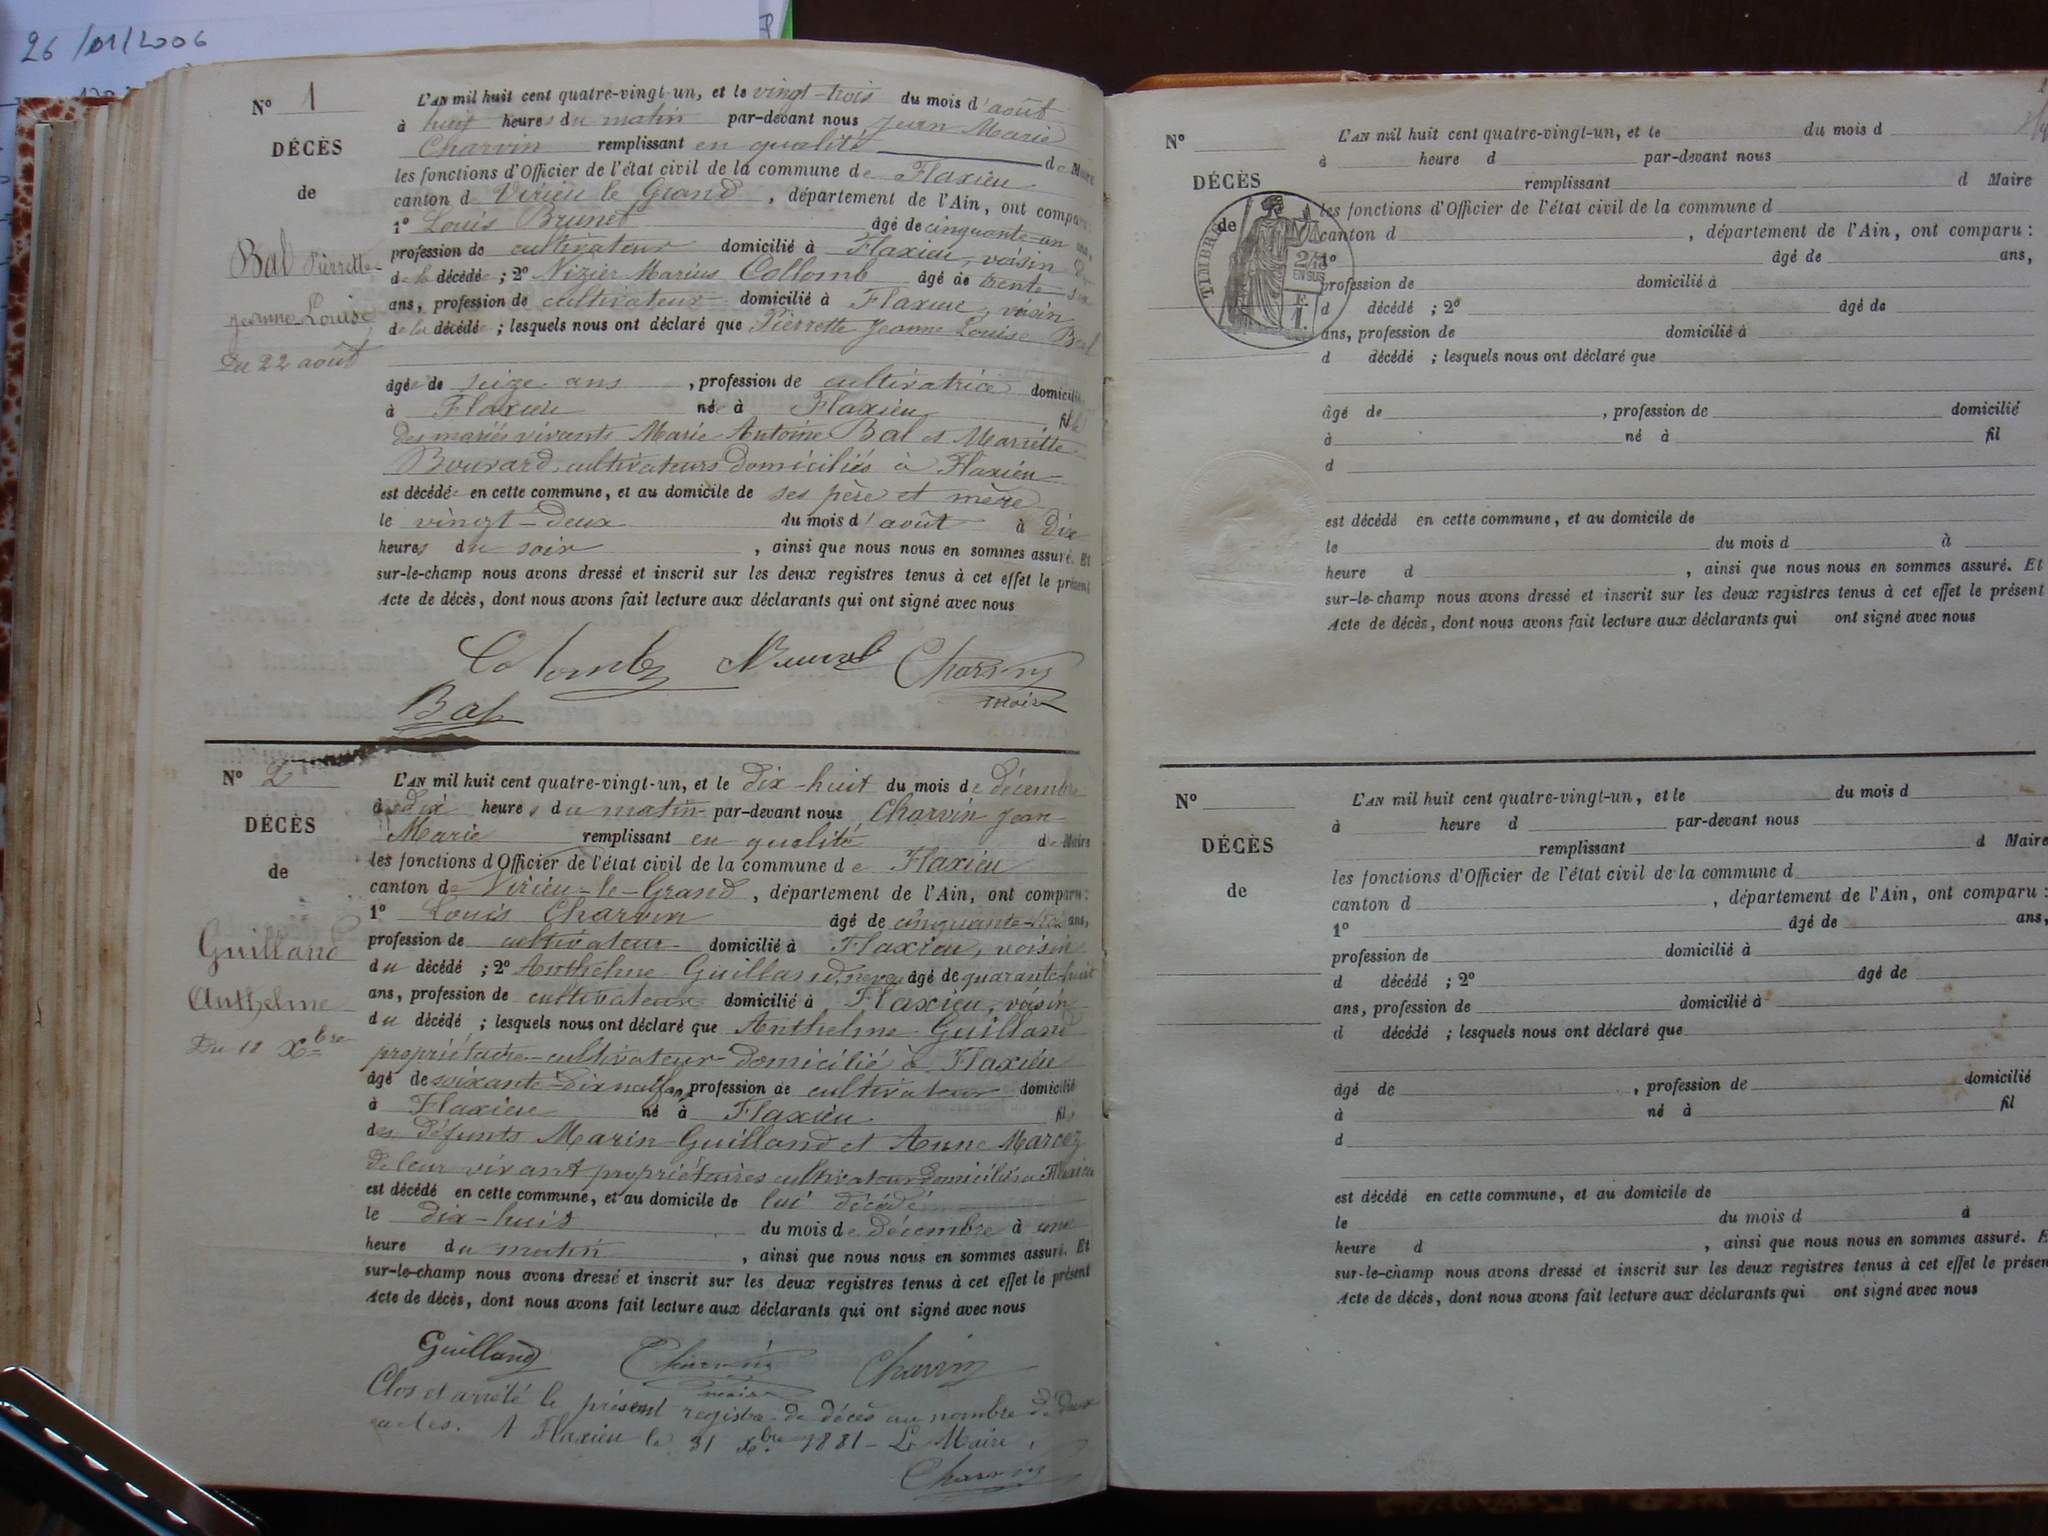 26/01/2006
N° 1
DÉCÈS
de
Bal Pierrette
Jeanne Louise
Du 22 août
L'AN mil huit cent quatre-vingt-un, et le vingt-trois du mois d'août
à huit heures du matin par-devant nous Jean Marie
Charvin remplissant en qualité de Maire
les fonctions d'Officier de l'état civil de la commune de Flaxieu
canton d Virieu le Grand, département de l'Ain, ont comparu:
1° Louis Brunet âgé de cinquante-un ans,
profession de cultivateur domicilié à Flaxieu, voisin
de la décédée; 2° Nizier Marius Collomb âgé de trente
ans, profession de cultivateur domicilié à Flaxieu, voisin
de la décédée; lesquels nous ont déclaré que Pierrette Jeanne Louise Bal
âgée de seize ans, profession de cultivatrice domiciliée
à Flaxieu née à Flaxieu fille
des mariés vivants Marie Antoine Bal et Marriette
Bouvard, cultivateurs domiciliés à Flaxieu
est décédée en cette commune, et au domicile de ses père et mère
le vingt-deux du mois d'août à dix
heures du soir, ainsi que nous nous en sommes assuré. Et
sur-le-champ nous avons dressé et inscrit sur les deux registres tenus à cet effet le présent
Acte de décès, dont nous avons fait lecture aux déclarants qui ont signé avec nous
Colomb Brunet Charvin
Bal maire
N° 2
DÉCÈS
de
Guilland
Anthelme
Du 18 Xbre
L'AN mil huit cent quatre-vingt-un, et le dix-huit du mois de décembre
à dix heures du matin par-devant nous Charvin Jean
Marie remplissant en qualité de Maire
les fonctions d'Officier de l'état civil de la commune de Flaxieu
canton de Virieu-le-Grand, département de l'Ain, ont comparu:
1° Louis Charvin âgé de cinquante ans,
profession de cultivateur domicilié à Flaxieu, voisin
du décédé; 2° Anthelme Guilland, neveu âgé de quarante-huit
ans, profession de cultivateur domicilié à Flaxieu, voisin
du décédé; lesquels nous ont déclaré que Anthelme Guilland
propriétaire-cultivateur domicilié à Flaxieu
âgé de soixante-dix neuf ans, profession de cultivateur domicilié
à Flaxieu né à Flaxieu fils
des défunts Marin Guilland et Anne Marcoz
de leur vivant propriétaires cultivateurs domiciliés à Flaxieu
est décédé en cette commune, et au domicile de lui décédé
le dix-huit du mois de décembre à une
heure du matin, ainsi que nous nous en sommes assuré. Et
sur-le-champ nous avons dressé et inscrit sur les deux registres tenus à cet effet le présent
Acte de décès, dont nous avons fait lecture aux déclarants qui ont signé avec nous
Guilland Charvin Charvin
maire
Clos et arrêté le présent registre de décès au nombre de deux
actes. A Flaxieu le 31 Xbre 1881 - Le Maire,
Charvin
N°
DÉCÈS
de
TIMBRE
2/10
EN SUS
1F.
L'AN mil huit cent quatre-vingt-un, et le du mois d
à heure d par-devant nous
remplissant d Maire
les fonctions d'Officier de l'état civil de la commune d
canton d , département de l'Ain, ont comparu:
1° âgé de ans,
profession de domicilié à
d décédé ; 2° âgé de
ans, profession de domicilié à
d décédé ; lesquels nous ont déclaré que
âgé de , profession de domicilié
à né à fil
d
est décédé en cette commune, et au domicile de
le du mois d à
heure d , ainsi que nous nous en sommes assuré. Et
sur-le-champ nous avons dressé et inscrit sur les deux registres tenus à cet effet le présent
Acte de décès, dont nous avons fait lecture aux déclarants qui ont signé avec nous
N°
DÉCÈS
de
L'AN mil huit cent quatre-vingt-un, et le du mois d
à heure d par-devant nous
remplissant d Maire
les fonctions d'Officier de l'état civil de la commune d
canton d , département de l'Ain, ont comparu:
1° âgé de ans,
profession de domicilié à
d décédé ; 2° âgé de
ans, profession de domicilié à
d décédé ; lesquels nous ont déclaré que
âgé de , profession de domicilié
à né à fil
d
est décédé en cette commune, et au domicile de
le du mois d à
heure d , ainsi que nous nous en sommes assuré. E
sur-le-champ nous avons dressé et inscrit sur les deux registres tenus à cet effet le présen
Acte de décès, dont nous avons fait lecture aux déclarants qui ont signé avec nous